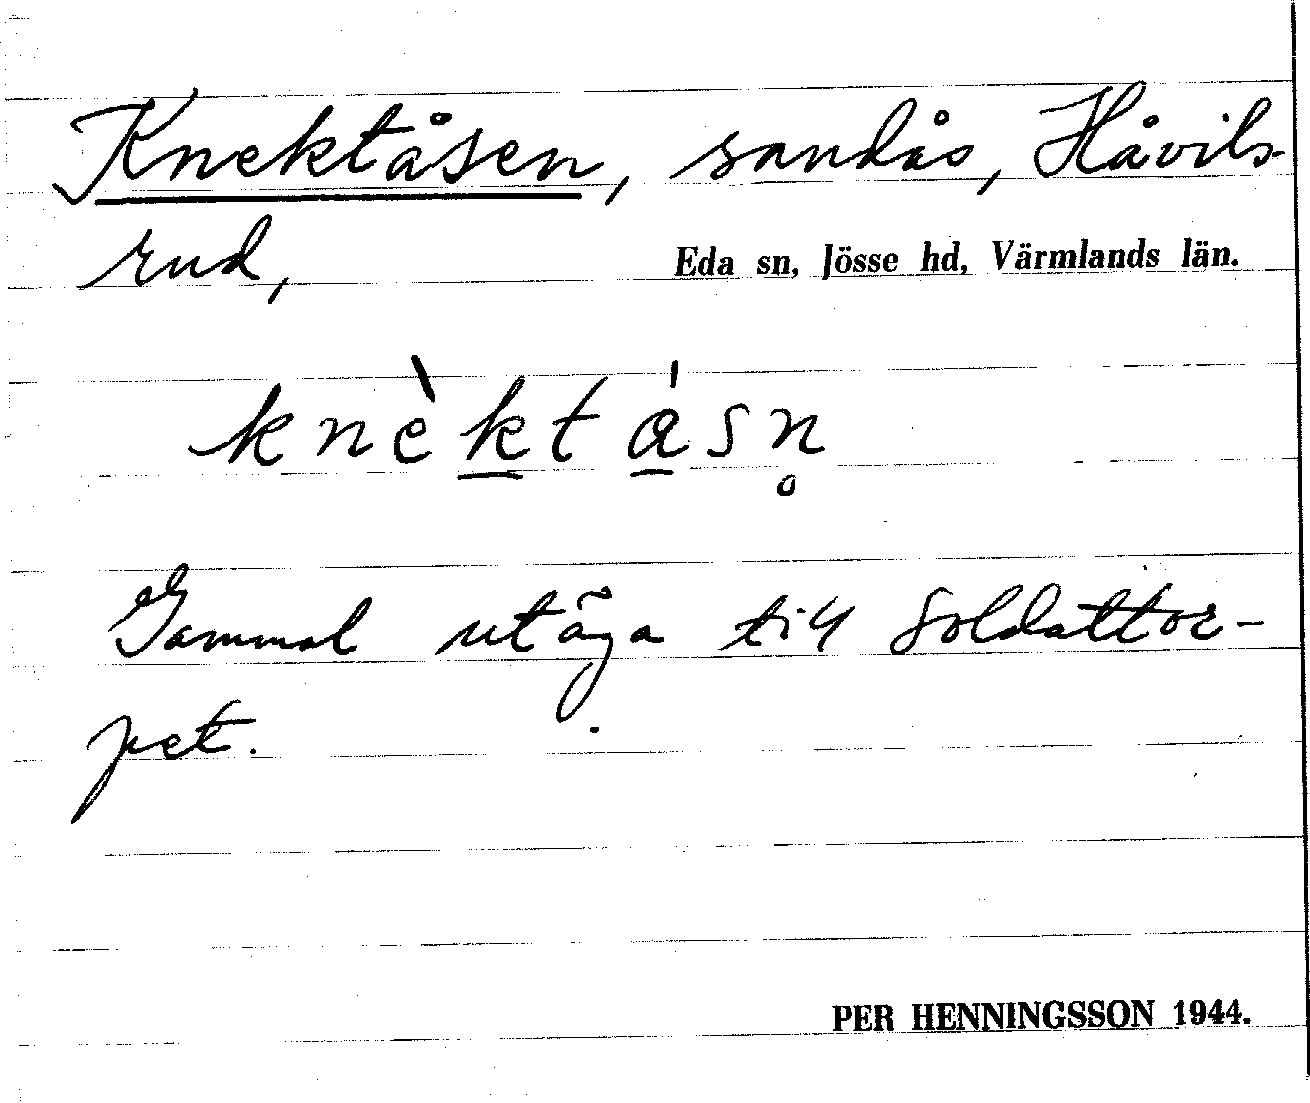 Knektåsen, sandås, Håvils-
rud,
Eda sn, Jösse hd, Värmlands län.
knèktásn̥
Gammal utäga till soldattor-
pet.
PER HENNINGSSON 1944.